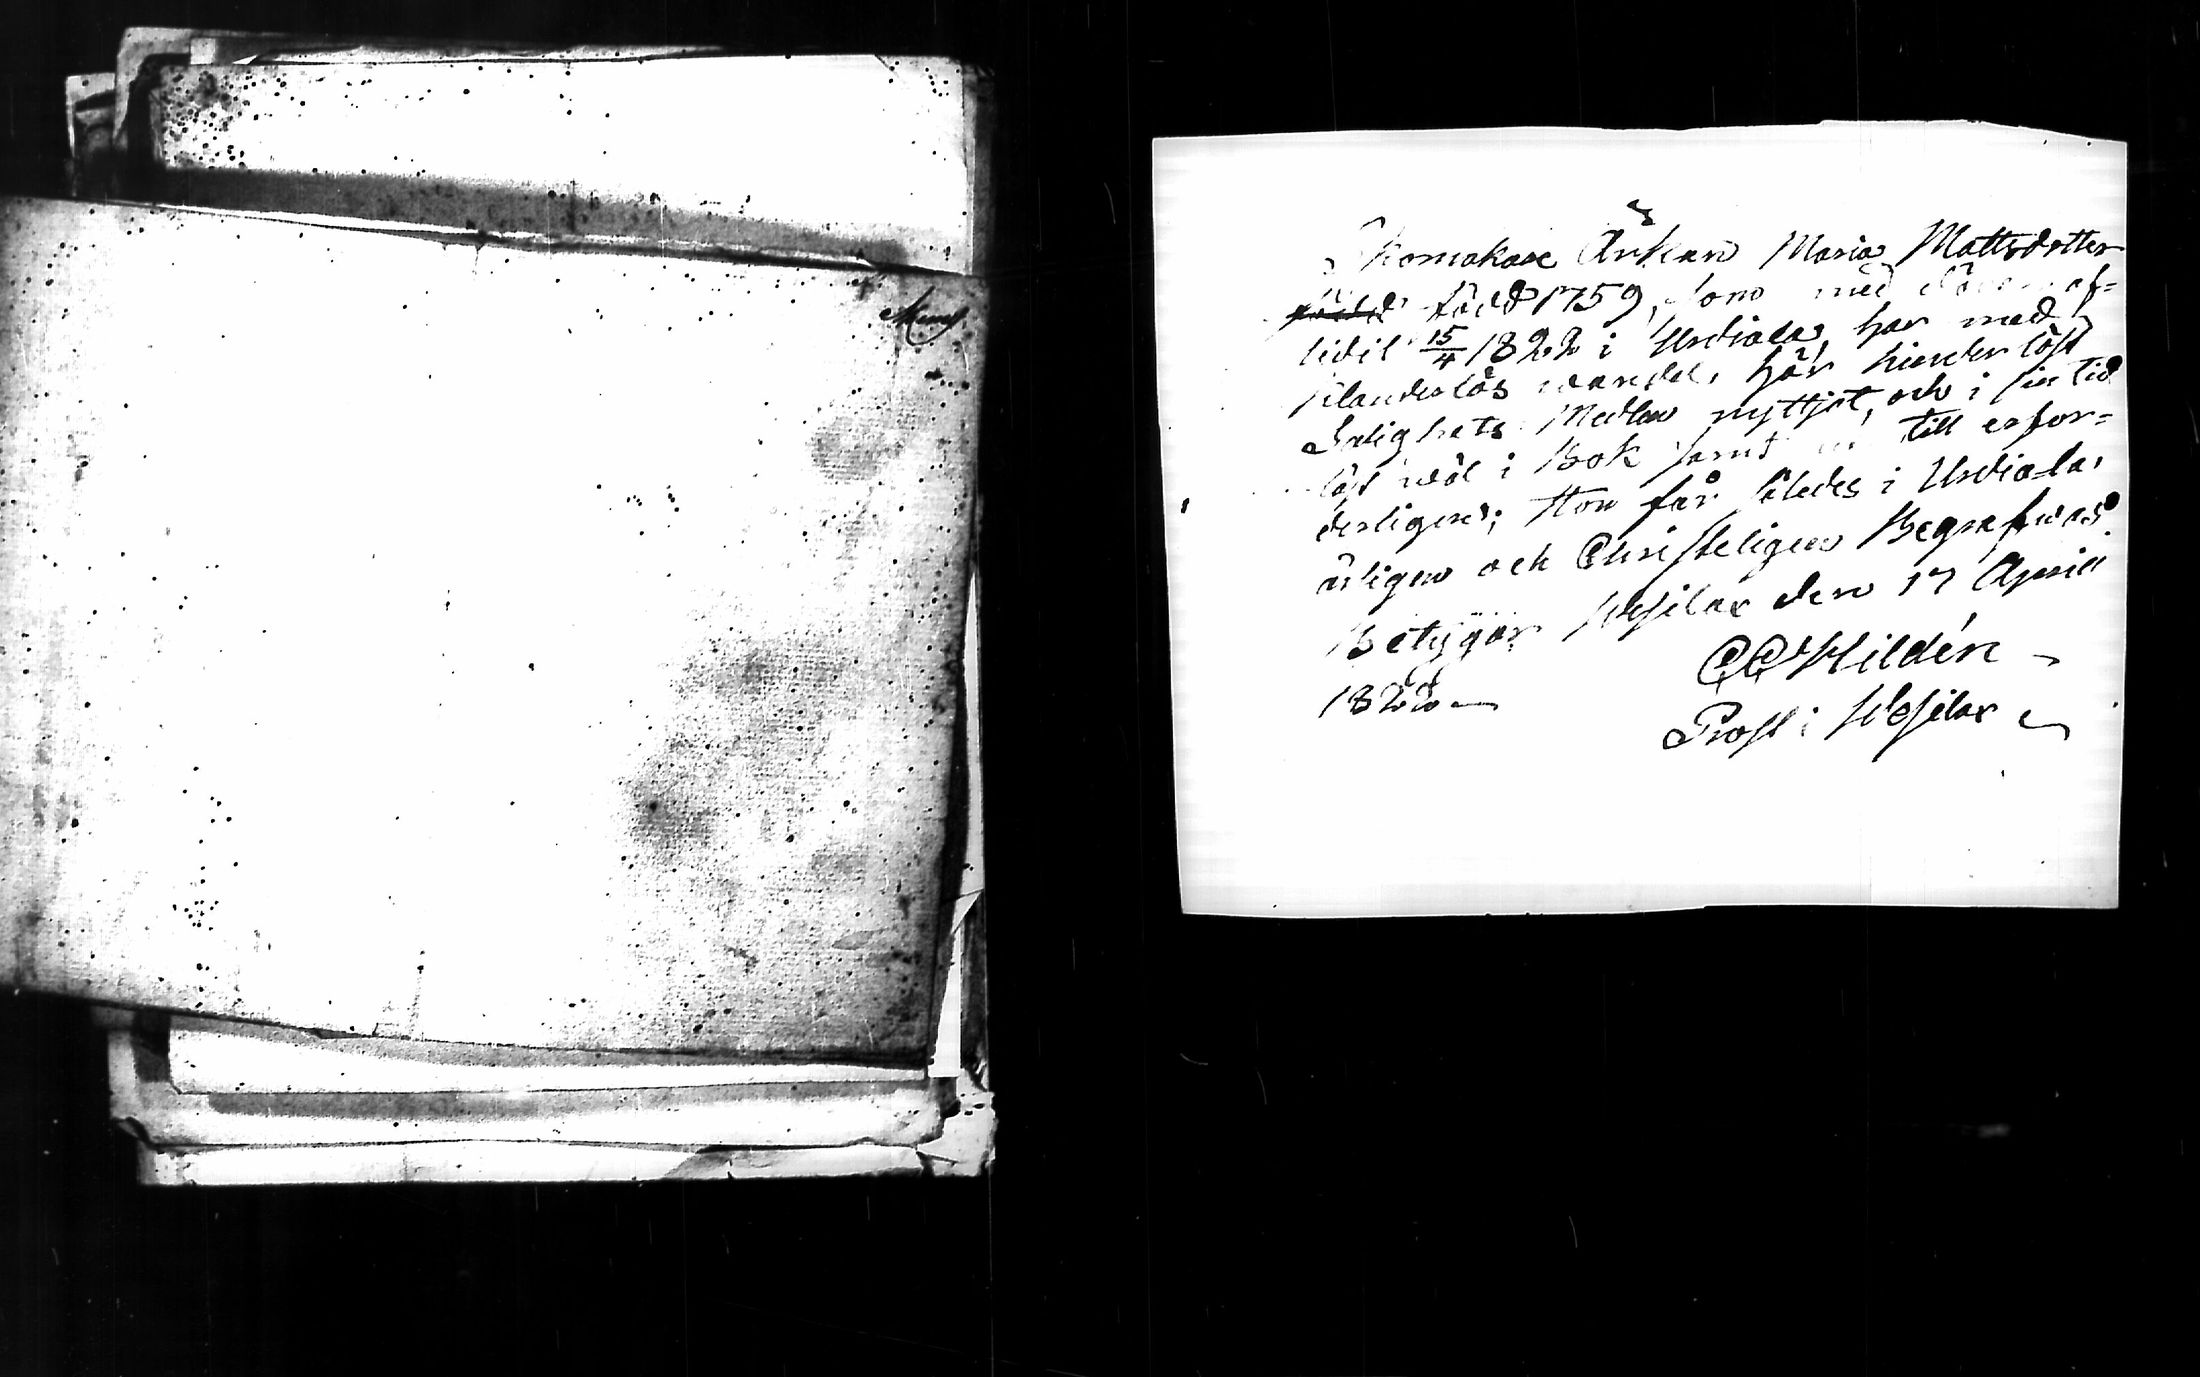 Skomakare Änkan Maria Mattsdotter
född 1759, som med döden af-
lidit 15/4 1822 i Urdiala, har med
klanderlös wandel, här hinderlöst
Salighets Medlen nyttjat, och i sin tid
läst wäl i Bok samt till erfor-
derligen; Hon får således i Urdiala,
ärligen och Christeligen Begrafwas
Betygar Wesilax den 17 April
1822 —
CC Hildén —
Prost i Wesilax